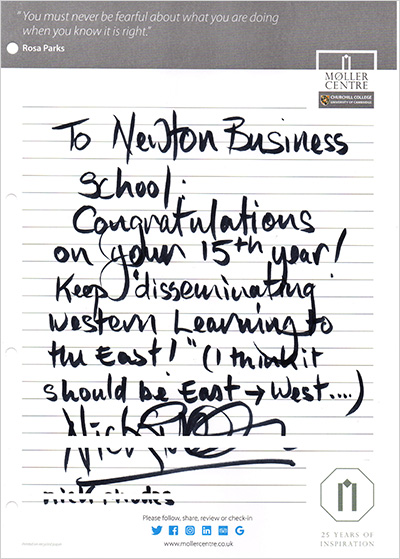 “You must never be fearful about what you are doing
when you know it is right.”
Rosa Parks
MØLLER
CENTRE
CHURCHILL COLLEGE
UNIVERSITY OF CAMBRIDGE
To Newton Business
School:
Congratulations
on your 15th year!
Keep "disseminating
Western Learning to
the East!" (I think it
should be East → West....)
Nick
nick rhodes
Please follow, share, review or check-in
www.mollercentre.co.uk
25 YEARS OF
INSPIRATION